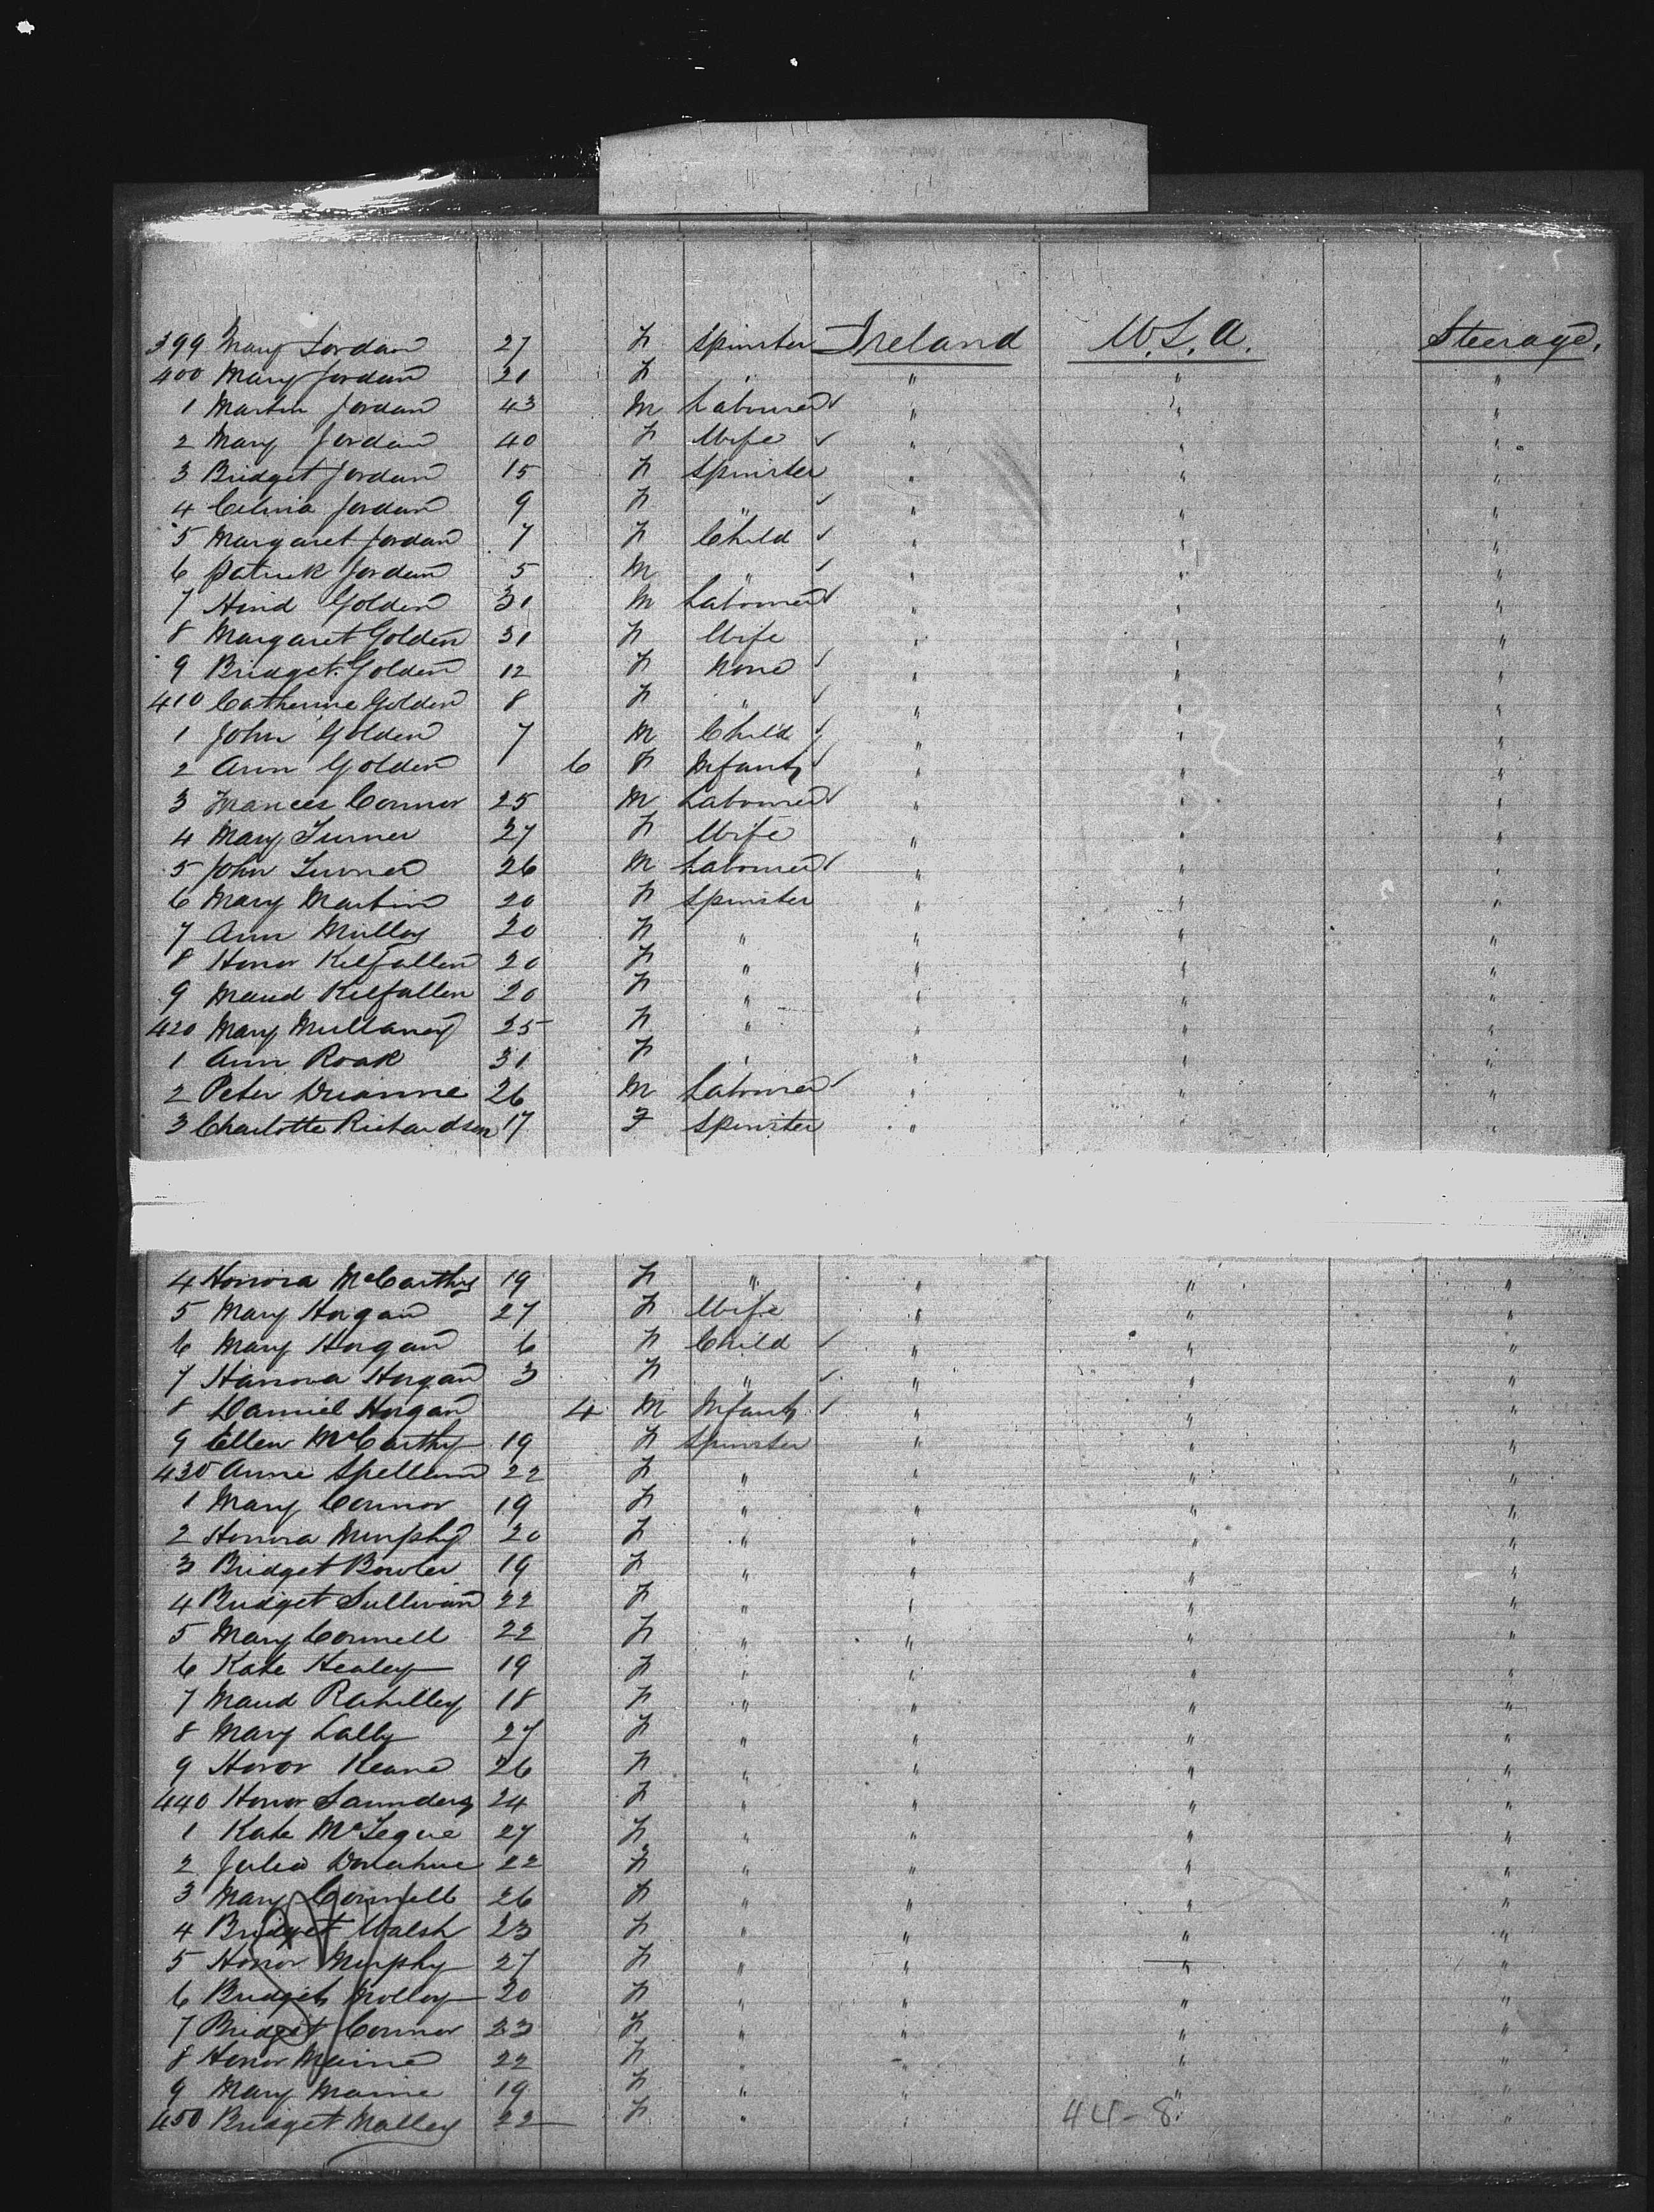 399 Mary Jordan 27 F Spinster Ireland U.S.A. Steerage.
400 Mary Jordan 21 F " " " "
1 Martin Jordan 43 M Labourer ✓ " " "
2 Mary Jordan 40 F Wife ✓ " " "
3 Bridget Jordan 15 F Spinster " " "
4 Celina Jordan 9 F " ✓ " " "
5 Margaret Jordan 7 F Child ✓ " " "
6 Patrick Jordan 5 M " ✓ " " "
7 Golden 31 M Labourer ✓ " " "
8 Margaret Golden 31 F Wife " " "
9 Bridget Golden 12 F None ✓ " " "
410 Catherine Golden 8 F " ✓ " " "
1 John Golden 7 M Child ✓ " " "
2 Ann Golden 6 F Infant ✓ " " "
3 Frances Connor 25 M Labourer ✓ " " "
4 Mary Turner 27 F Wife " " "
5 John Turner 26 M Labourer ✓ " " "
6 Mary Martin 20 F Spinster " " "
7 Ann Mulloy 20 F " " " "
8 Honor Kilfallen 20 F " " " "
9 Maud Kilfallen 20 F " " " "
420 Mary Mullaney 25 F " " " "
1 Ann Roak 31 F " " " "
2 Peter 26 M Labourer ✓ " " "
3 Charlotte Richardson 17 F Spinster " " "
4 Honora McCarthy 19 F " " " "
5 Mary Horgan 27 F Wife " " "
6 Mary Horgan 6 F Child ✓ " " "
7 Hanora Horgan 3 F " ✓ " " "
8 Daniel Horgan 4 M Infant ✓ " " "
9 Ellen McCarthy 19 F Spinster " " "
430 Anne Spellman 22 F " " " "
1 Mary Connor 19 F " " " "
2 Honora Murphy 20 F " " " "
3 Bridget Bowler 19 F " " " "
4 Bridget Sullivan 22 F " " " "
5 Mary Connell 22 F " " " "
6 Kate Healey 19 F " " " "
7 Maud Rahilley 18 F " " " "
8 Mary Lally 27 F " " " "
9 Honor Keane 26 F " " " "
440 Honor Saunders 24 F " " " "
1 Kate McTegue 27 F " " " "
2 Julia Donahue 22 F " " " "
3 Mary Connell 26 F " " " "
4 Bridget Walsh 23 F " " " "
5 Honor Murphy 27 F " " " "
6 Bridget Molloy 20 F " " " "
7 Bridget Connor 23 F " " " "
8 Honor Maine 22 F " " " "
9 Mary Maine 19 F " " " "
450 Bridget Malley 22 F " " 44-8 "